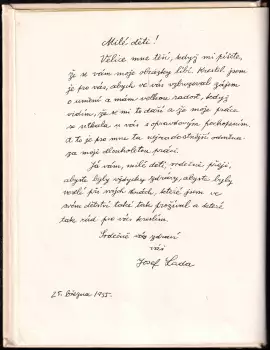 Milé děti!
Velice mne těší, když mi píšete,
že se vám moje obrázky líbí. Kreslil jsem
je pro vás, abych ve vás vzbuzoval zájem
o umění a mám velkou radost, když
vidím, že se mi to daří a že moje práce
se setkala u vás s opravdovým pochopením.
A to je pro mne ta nejradostnější odměna
za moje dlouholetou práci.
Já vám, milé děti, srdečně přeji,
abyste byly vždycky zdrávy, abyste byly
veselé při svých hrách, které jsem ve
svém dětství také tak prožíval a které
tak rád pro vás kreslím.
Srdečně vás zdraví
váš
Josef Lada
25. března 1955.